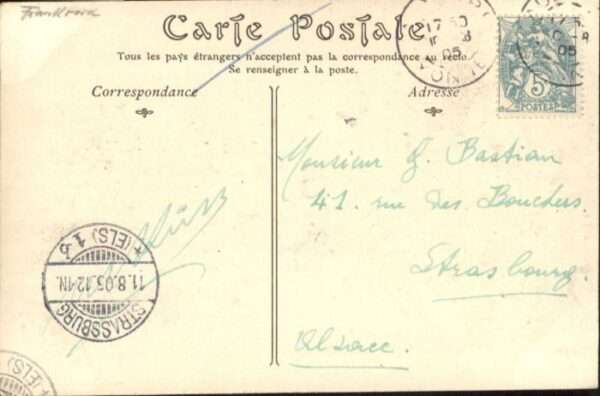 Frankreich
Carte Postale
Tous les pays étrangers n'acceptent pas la correspondance au recto.
Se renseigner à la poste.
Correspondance
Adresse
17 50
05
YONNE
5
POSTES
Monsieur G. Bastian
41. rue des Bouchers
Strasbourg.
Alsace.
STRASSBURG
11.8.05.12-1N.
(ELS) 1 b
(ELS)